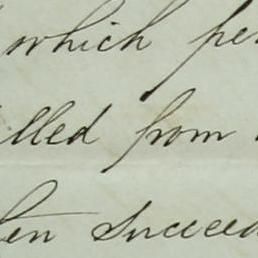 which per
lled from
en succeed